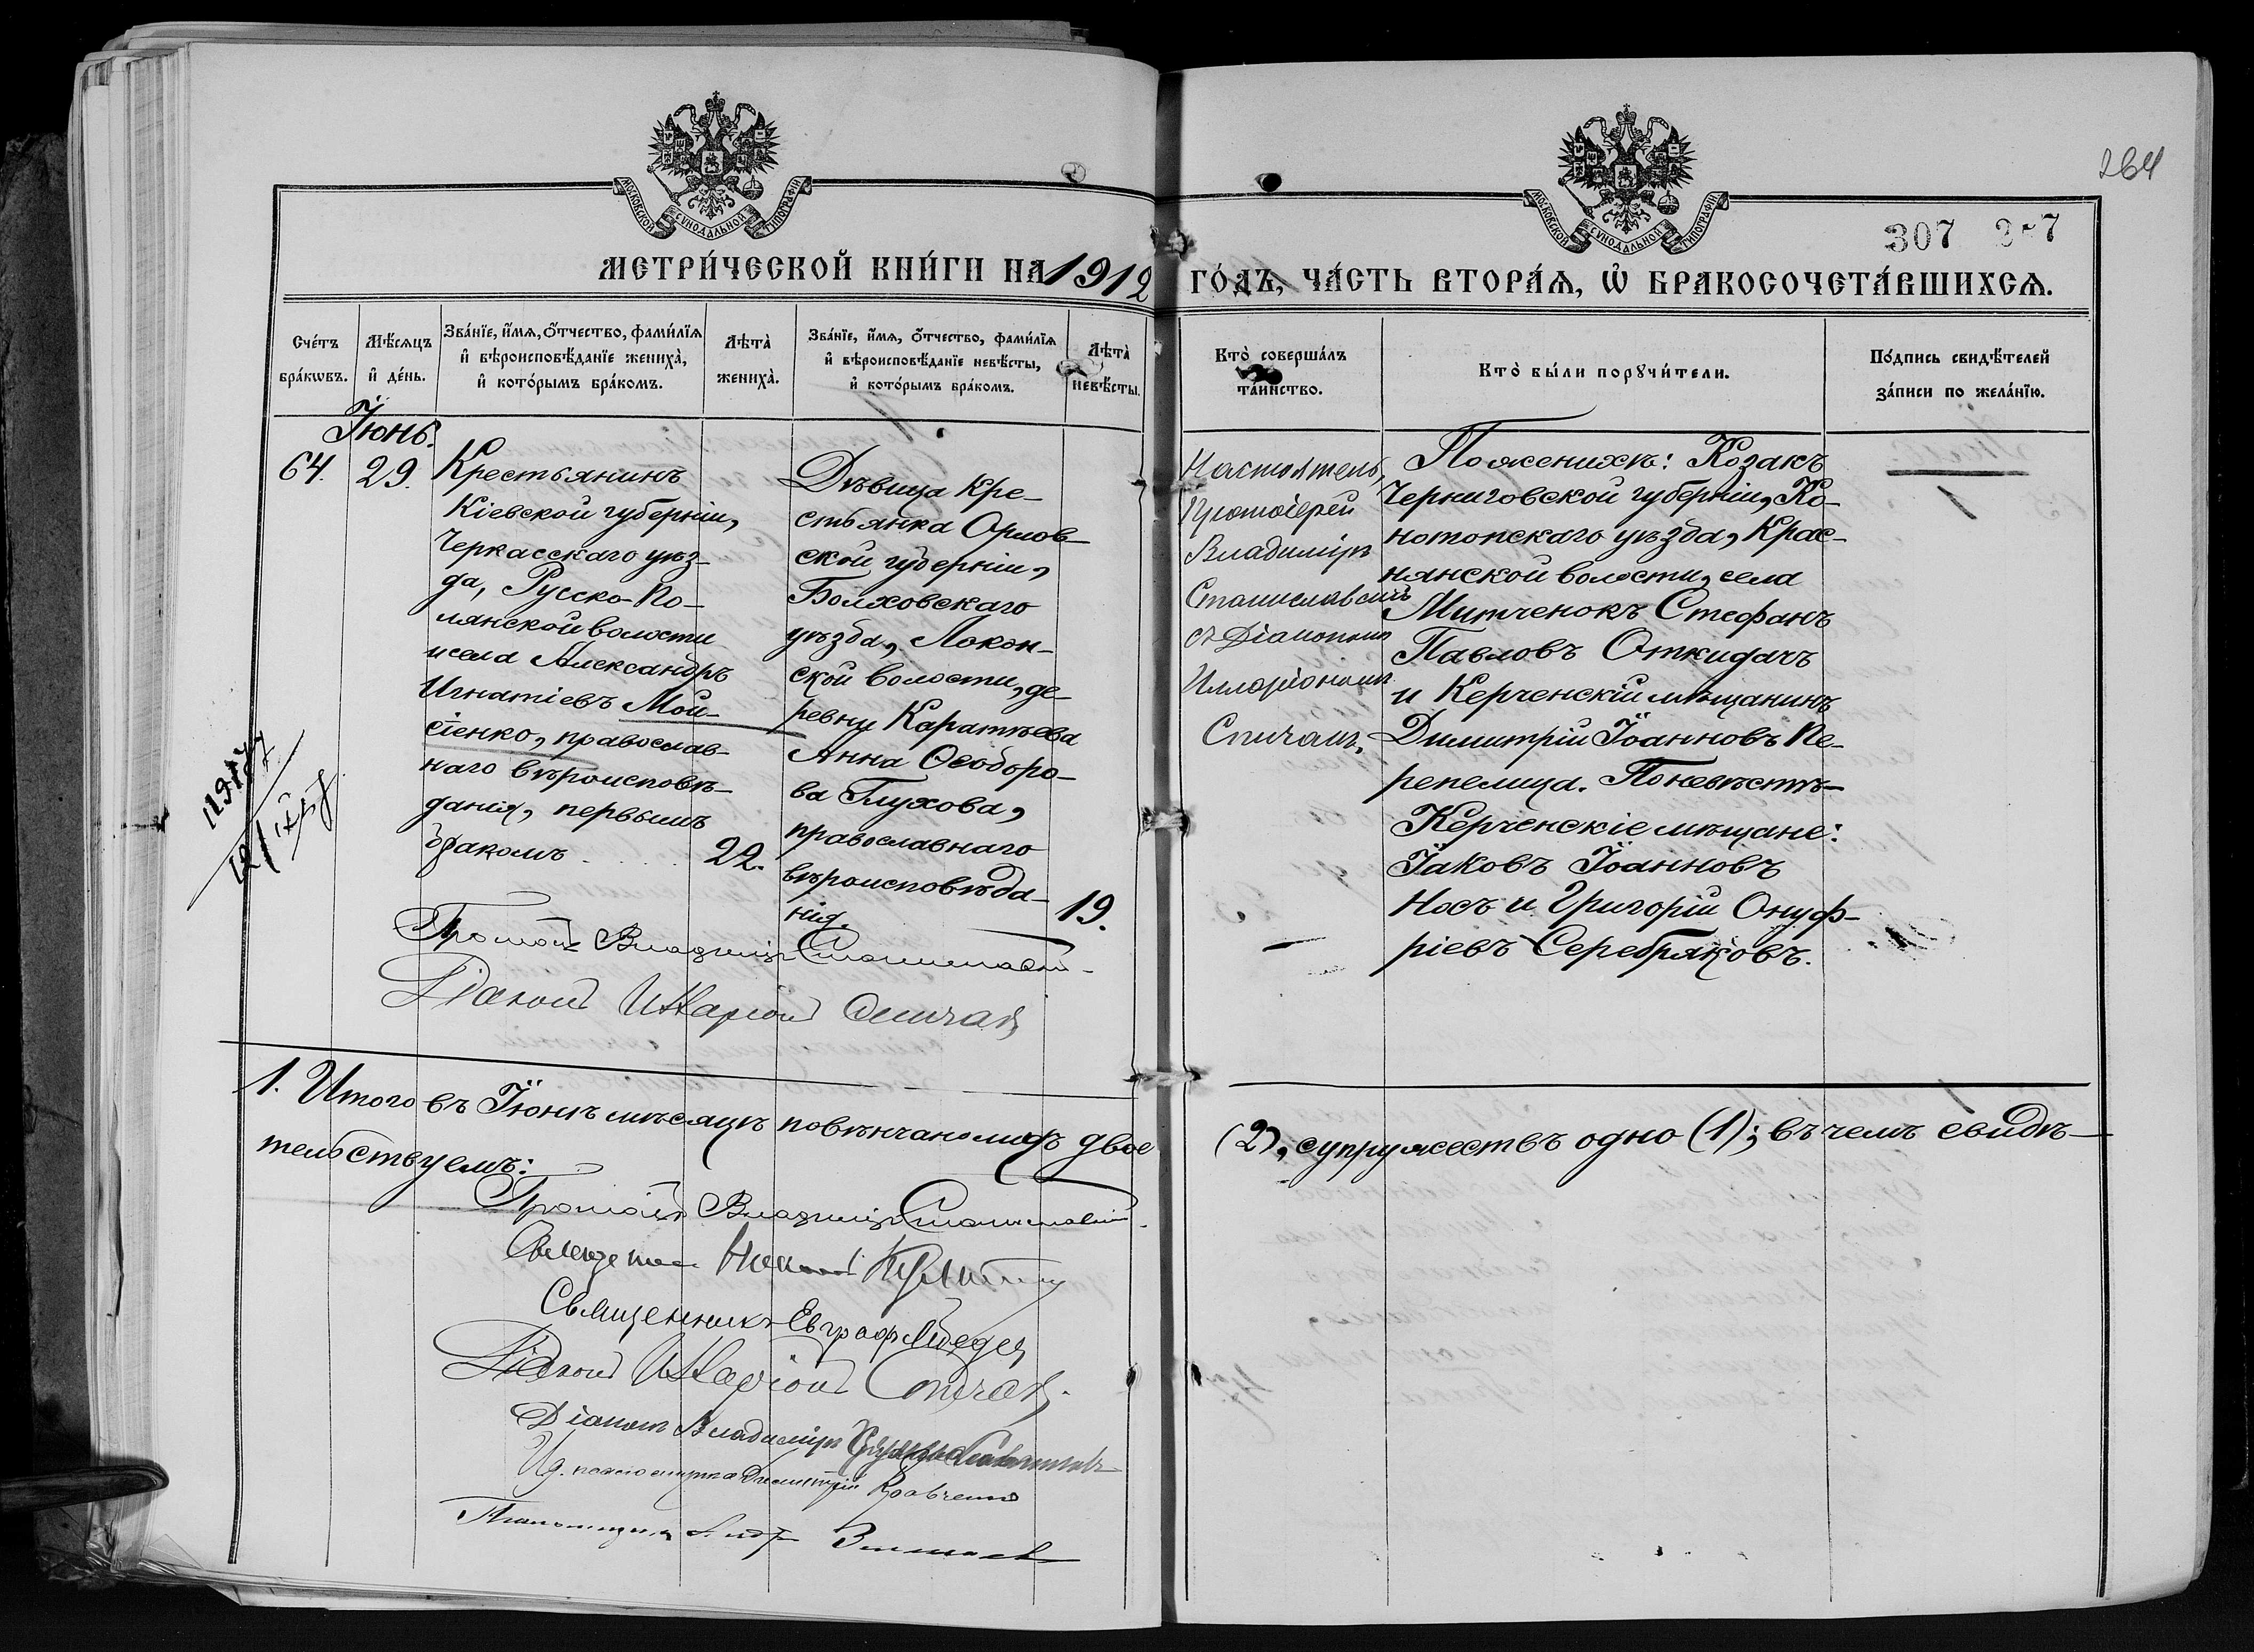 264
307
МОСКОВСКОЙ СУНОДАЛЬНОЙ ТИПОГРАФІИ
МОСКОВСКОЙ СУНОДАЛЬНОЙ ТИПОГРАФІИ
МЕТРИ́ЧЕСКОЙ КНИ́ГИ НА 1912 ГО́ДЪ, ЧА́СТЬ ВТОРА́Ѧ, Ѡ҆ БРАКОСОЧЕТА́ВШИХСѦ.
Сче́тъ
бра́кѡвъ.
Мѣ́сѧцъ
и҆ де́нь.
Зва́нїе, и҆́мѧ, ѻ҆́тчество, фами́лїѧ
и҆ вѣроисповѣ́данїе жениха̀,
и҆ кото́рымъ бра́комъ.
Лѣта̀
жениха̀.
Зва́нїе, и҆́мѧ, ѻ҆́тчество, фами́лїѧ
и҆ вѣроисповѣ́данїе невѣ́сты,
и҆ кото́рымъ бра́комъ.
Лѣта̀
невѣ́сты.
Кто̀ соверша́лъ
та́инство.
Кто̀ бы́ли порꙋчи́тели.
По́дпись свидѣ́телей
за́писи по жела́нїю.
Іюнь.
64.
29.
Крестьянинъ
Кіевской губерніи,
Черкасскаго уѣз-
да, Русско-По-
лянской волости
и села Александръ
Игнатіевъ Мои-
сіенко, православ-
наго вѣроисповѣ-
данія, первымъ
бракомъ . . . . .
22.
Дѣвица кре-
стьянка Орлов-
ской губерніи,
Болховскаго
уѣзда, Локон-
ской волости, де-
ревни Каратѣева
Анна Ѳеодоро-
ва Глухова,
православнаго
вѣроисповѣда-
нія.
19.
Настоятель,
Протоіерей
Владиміръ
Станиславскій
съ Діакономъ
Илларіономъ
Спичакъ.
По женихѣ: Козакъ
Черниговской губерніи, Ко-
нотопскаго уѣзда, Крас-
нянской волости, села
Митченокъ Стефанъ
Павловъ Откидачъ
и Керченскій мѣщанинъ
Димитрій Іоанновъ Пе-
репелица. По невѣстѣ-
Керченскіе мѣщане:
Іаковъ Іоанновъ
Носъ и Григорій Онуф-
ріевъ Серебряковъ.
Протоіер Владиміръ Станиславскій
Діаконъ Илларіонъ Спичакъ
1. Итого въ Іюнѣ мѣсяцѣ повѣнчано лицъ двое (2), супружествъ одно (1); въ чемъ свидѣ-
тельствуемъ:
Протоіер Владиміръ Станиславскій
Священникъ
Священникъ Евграфъ
Діаконъ Илларіонъ Спичакъ
Діаконъ Владиміръ
И.д. псаломщика Димитрій Кравченко
Псаломщикъ